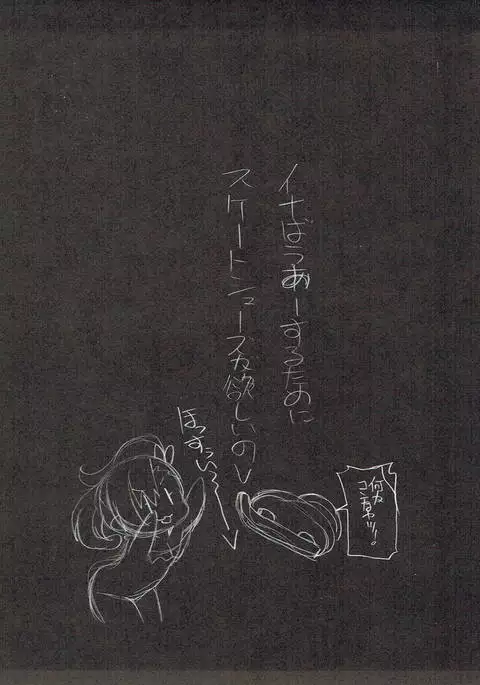 イナばうあーするために
スケートシューズが欲しいの
ほっすぃ〜
何か